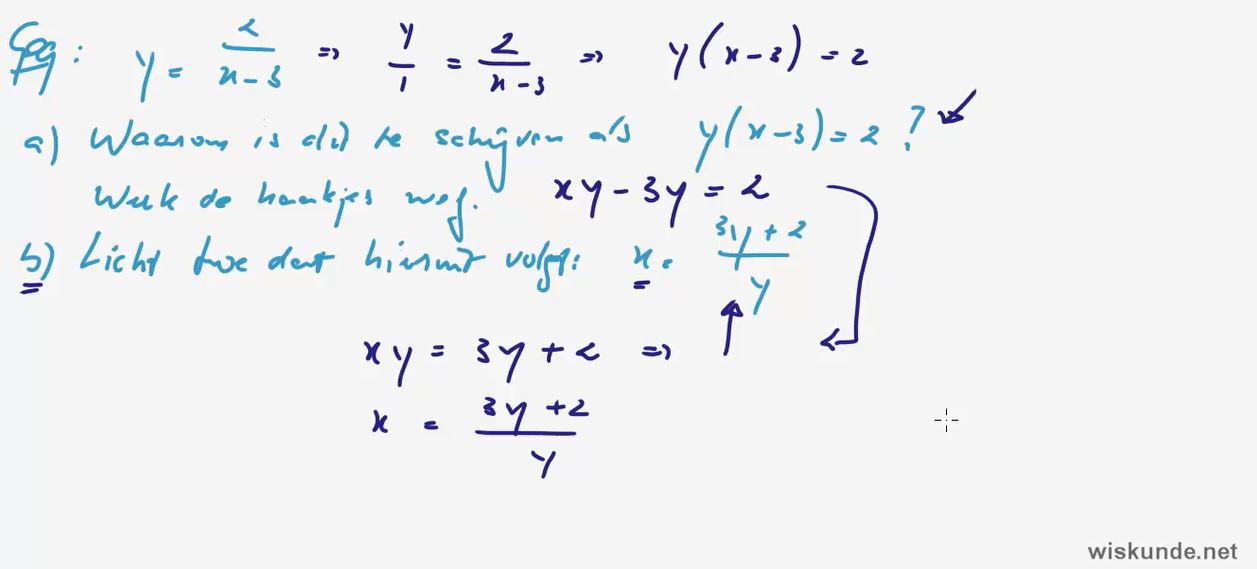 Geg: y = 2/(x-3) => y/1 = 2/(x-3) => y(x-3) = 2
a) Waarom is dit te schrijven als y(x-3) = 2 ?
Werk de haakjes weg. xy - 3y = 2
b) Licht toe dat hieruit volgt: x = (3y+2)/y
xy = 3y + 2 =>
x = (3y+2)/y
wiskunde.net